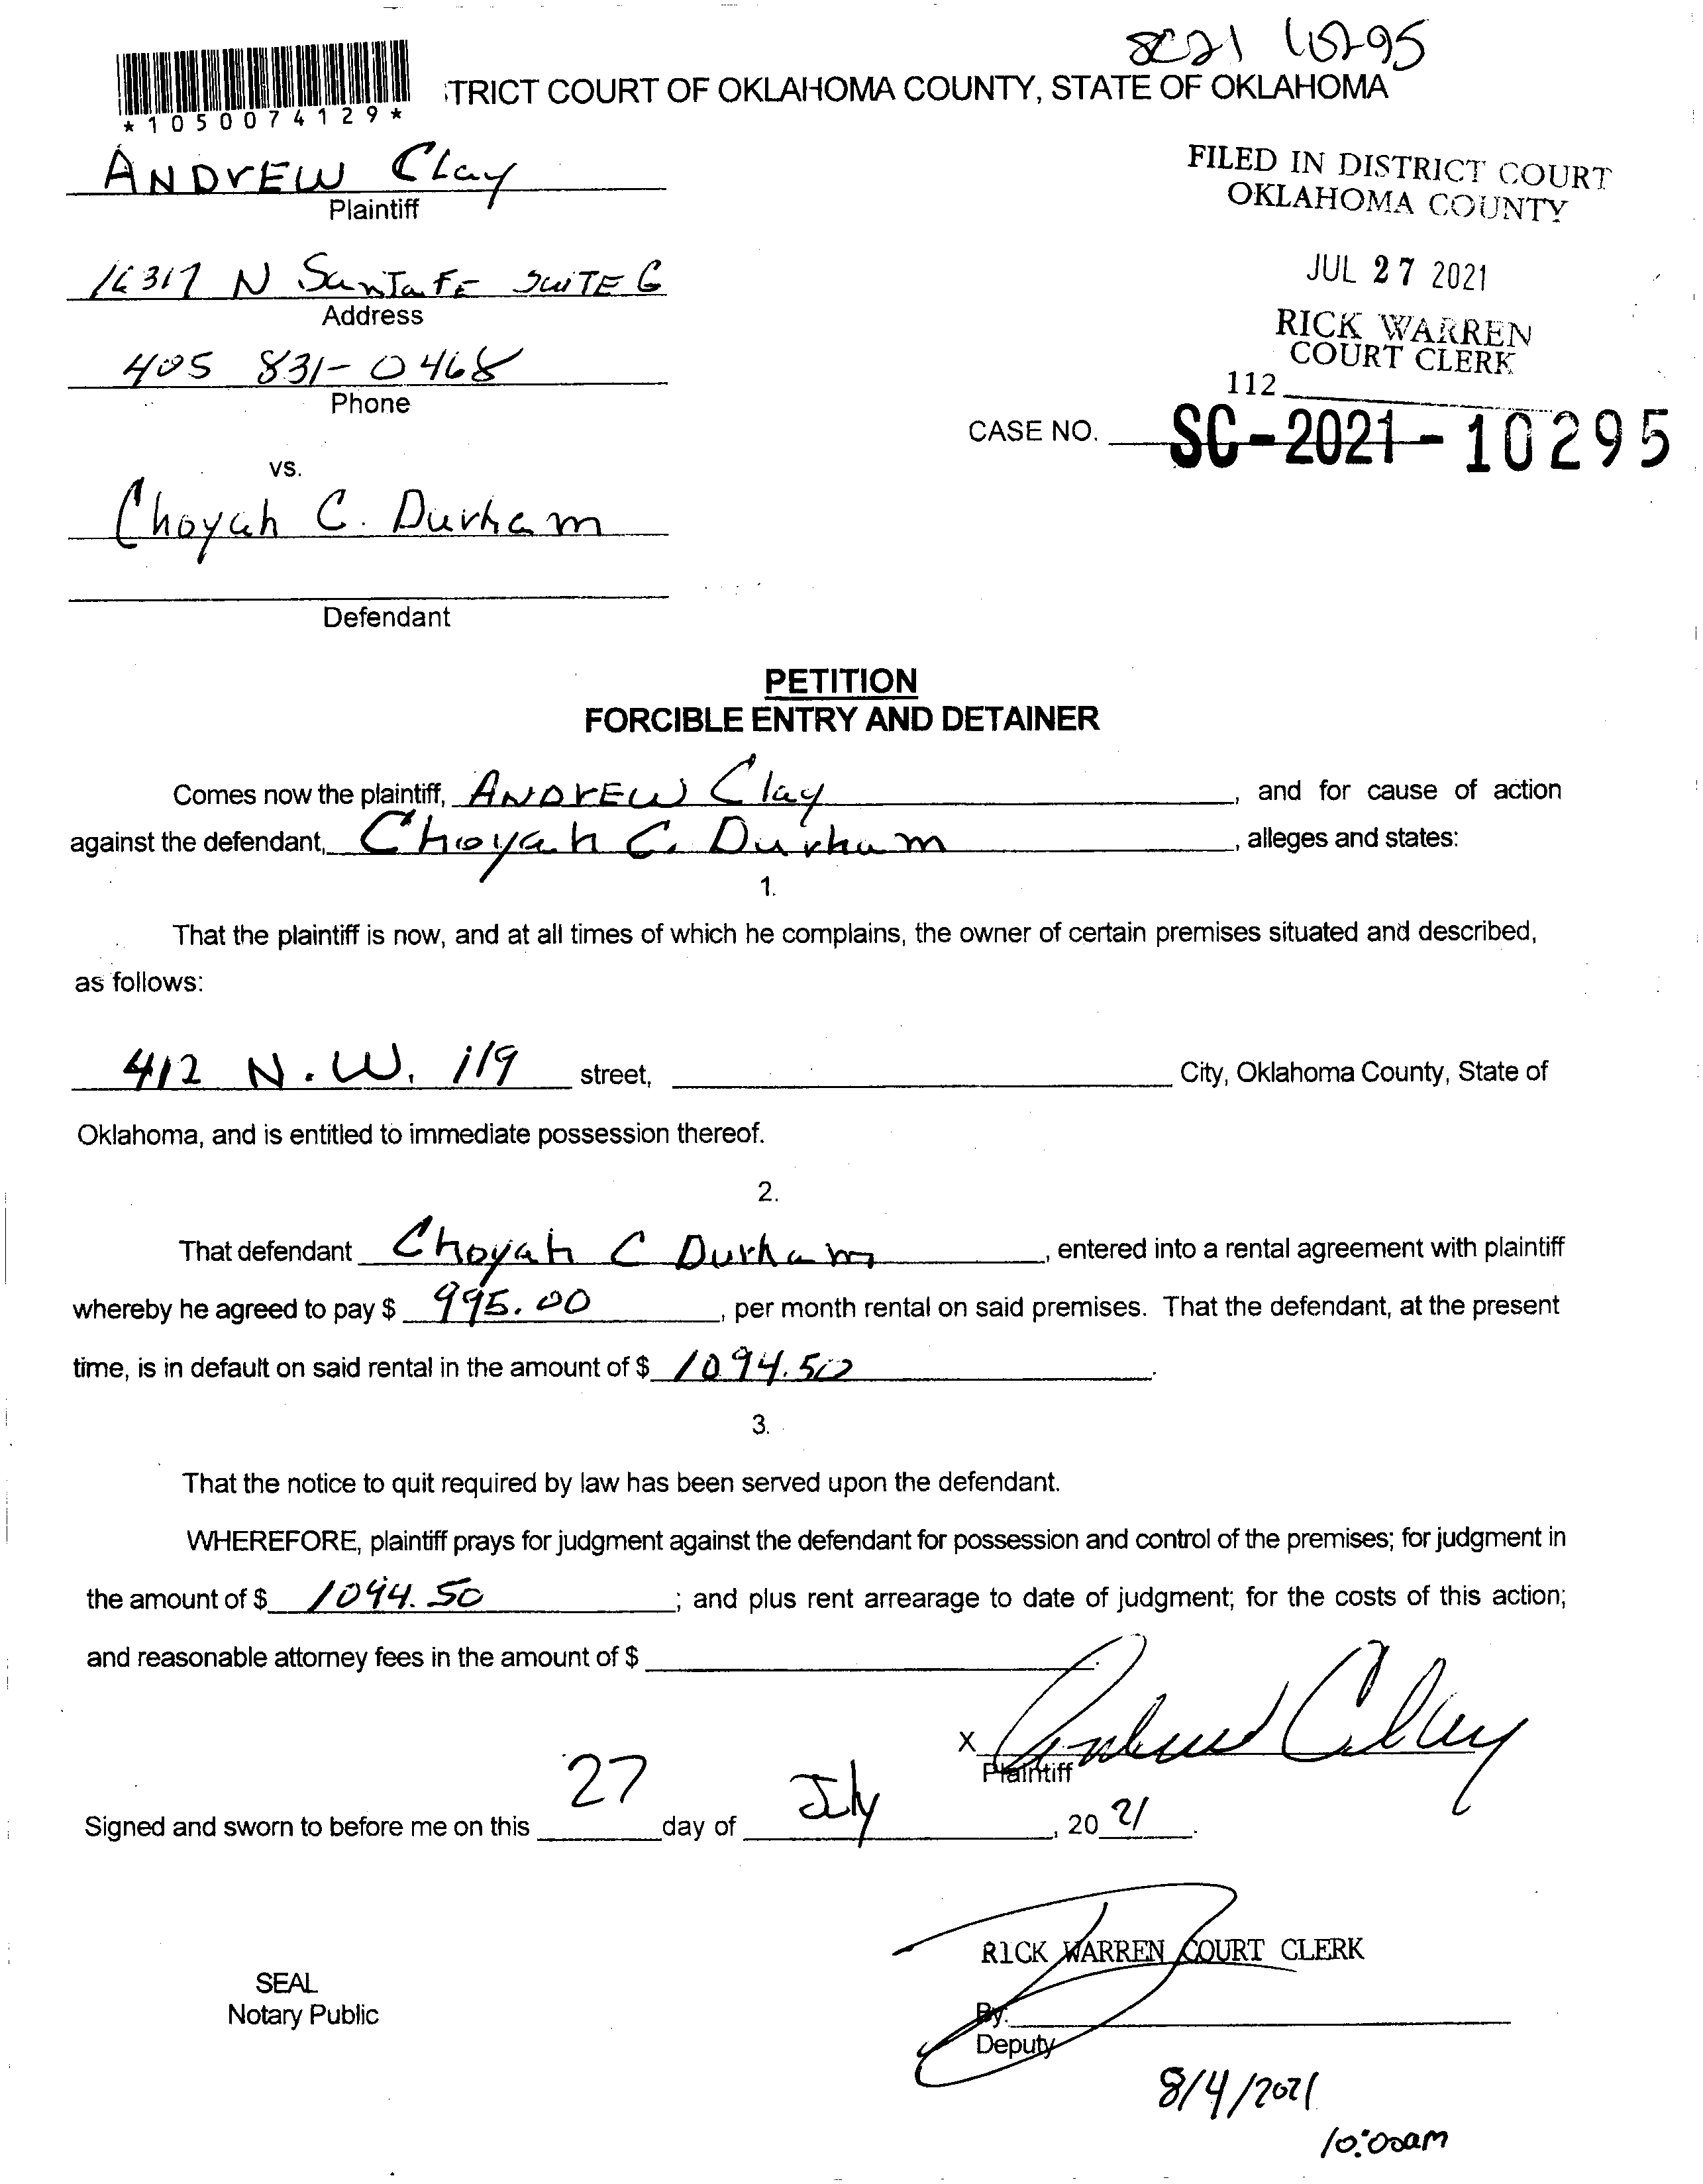 SC21 10295
TRICT COURT OF OKLAHOMA COUNTY, STATE OF OKLAHOMA
*1050074129*
ANDrEW Clay
Plaintiff
FILED IN DISTRICT COURT
OKLAHOMA COUNTY
16317 N Santa FE SuiTE G
Address
JUL 27 2021
405 831-0468
Phone
RICK WARREN
COURT CLERK
112
CASE NO. SC-2021-10295
vs.
Choyah C. Durham
Defendant
PETITION
FORCIBLE ENTRY AND DETAINER
Comes now the plaintiff, ANDrEW Clay, and for cause of action
against the defendant, Choyah C. Durham, alleges and states:
1.
That the plaintiff is now, and at all times of which he complains, the owner of certain premises situated and described,
as follows:
412 N.W. 119 street, City, Oklahoma County, State of
Oklahoma, and is entitled to immediate possession thereof.
2.
That defendant Choyah C Durham, entered into a rental agreement with plaintiff
whereby he agreed to pay $ 995.00, per month rental on said premises. That the defendant, at the present
time, is in default on said rental in the amount of $ 1094.50.
3.
That the notice to quit required by law has been served upon the defendant.
WHEREFORE, plaintiff prays for judgment against the defendant for possession and control of the premises; for judgment in
the amount of $ 1094.50; and plus rent arrearage to date of judgment; for the costs of this action;
and reasonable attorney fees in the amount of $
X Andrew Clay
Plaintiff
Signed and sworn to before me on this 27 day of July, 20 21.
RICK WARREN COURT CLERK
SEAL
Notary Public
By:
Deputy
8/4/2021
10:00am